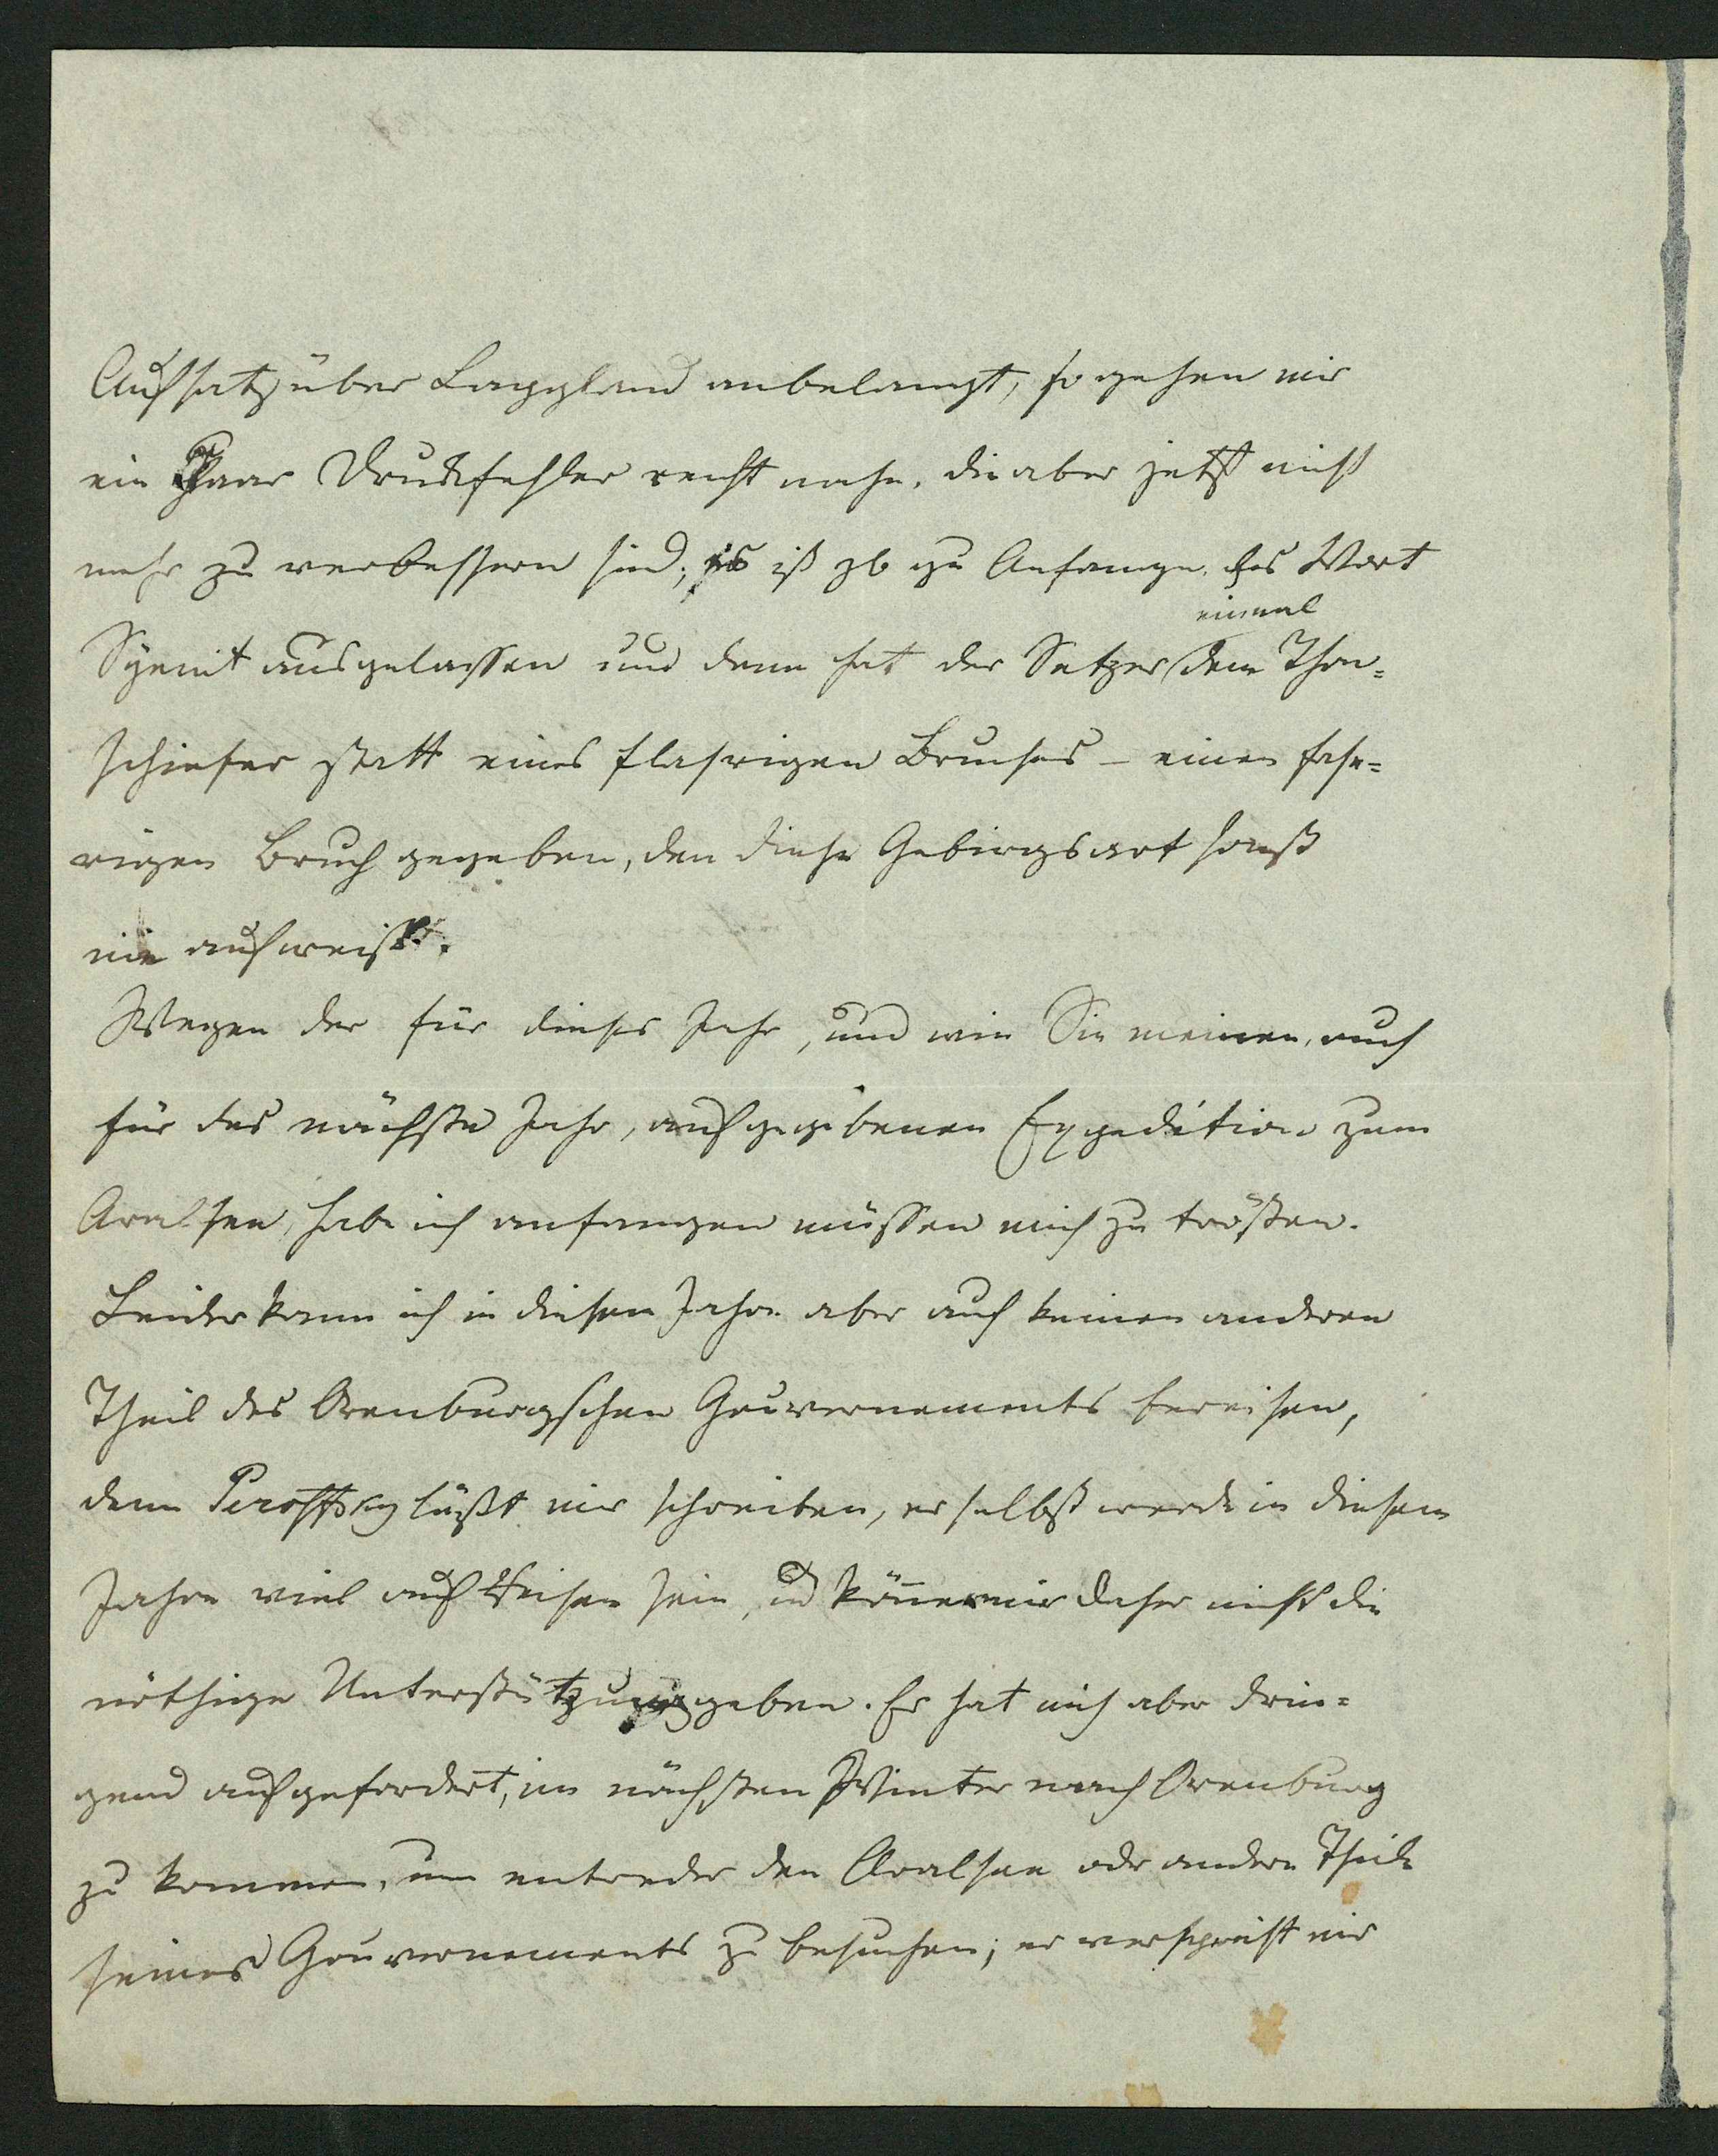 Aufsatz über Lappland anbelangt, so gehen mir
ein Paar Druckfehler recht nahe, die aber jetzt nicht
mehr zu verbessern sind; es ist zb zu Anfange, das Wort
Syenit ausgelassen und dann hat der Setzer einmal dem Thon-
schiefer statt eines flasrigen Bruches – einen fase-
rigen Bruch gegeben, den diese Gebirgsart sonst
nie aufweist.
Wegen der für dieses Jahr, und wie Sie meinen, auch
für das nächste Jahr, aufgegebenen Expedition zum
Aralsee, habe ich anfangen müssen mich zu trösten.
Leider kann ich in diesem Jahre aber auch keinen anderen
Theil des Orenburgschen Gouvernements bereisen,
denn Peroffsky läßt mir schreiben, er selbst werde in diesem
Jahre viel auf Reisen sein, und könne mir daher nicht die
nöthige Unterstützung geben. Er hat mich aber drin-
gend aufgefordert, im nächsten Winter nach Orenburg
zu kommen, um entweder den Aralsee oder andere Theile
seines Gouvernements zu besuchen; er verspricht mir